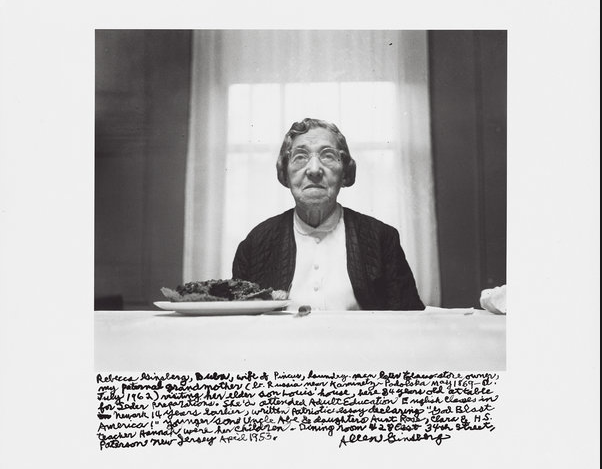 Rebecca Ginsberg, Buba, wife of Pincus, laundry-man later tobacco-store owner,
my paternal grandmother (b. Russia near Kaminetz-Podolska May 1869 – d.
July 1962) visiting her elder son Louis' house, here 84 years old at table
for Seder preparations. She'd attended Adult Education English classes in
Newark 14 years earlier, written Patriotic essay declaring "God Blast
America!" Younger son Uncle Abe & daughters Aunt Rose, Clara & H.S.
teacher Hannah were her children – Dining room 288 East 34th Street,
Paterson New Jersey April 1953.
Allen Ginsberg